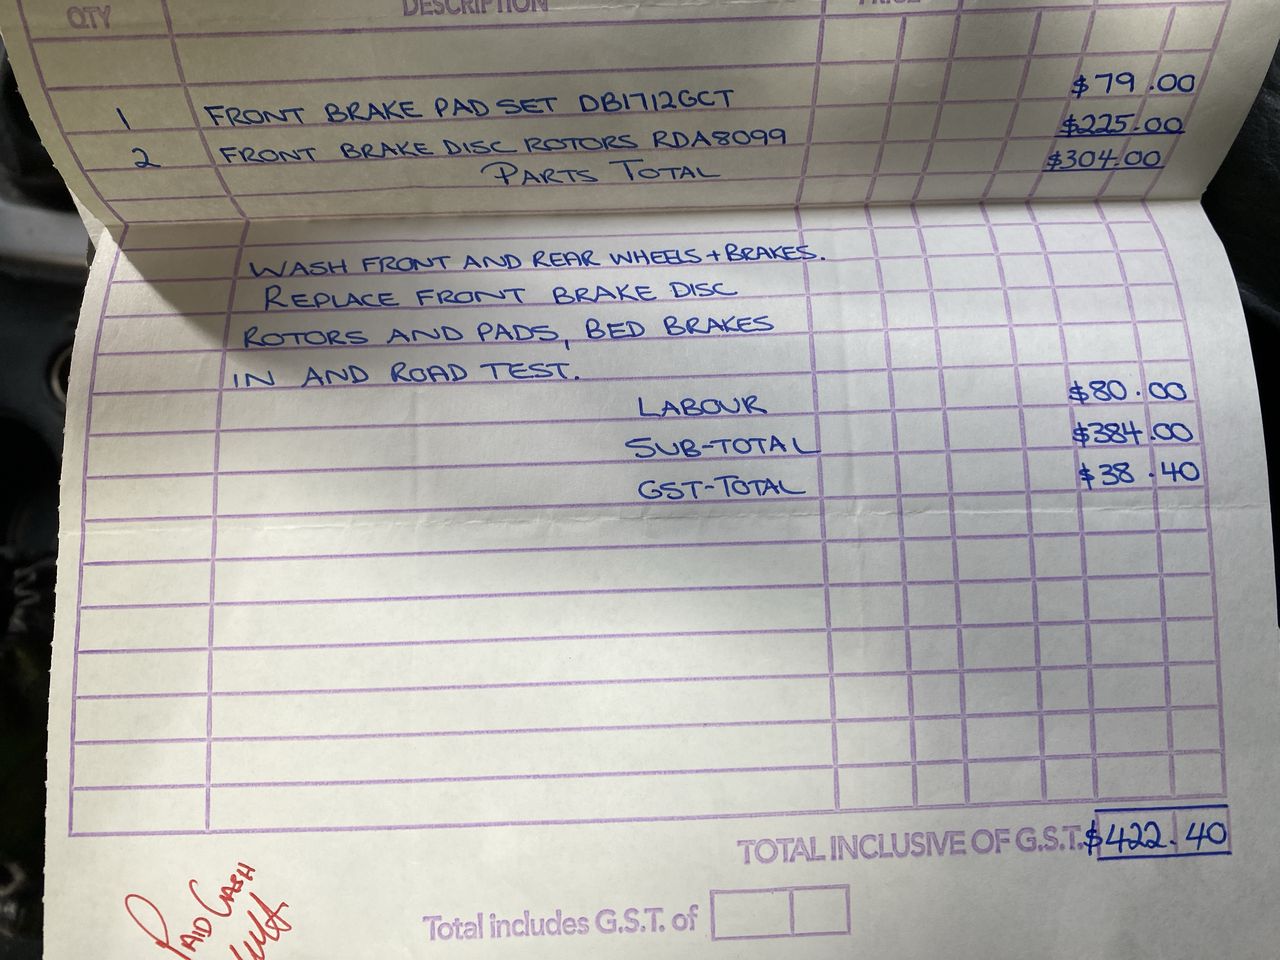 QTY DESCRIPTION PRICE
$79.00
1 FRONT BRAKE PAD SET DB1712GCT
$225.00
2 FRONT BRAKE DISC ROTORS RDA8099
PARTS TOTAL $304.00
WASH FRONT AND REAR WHEELS + BRAKES.
REPLACE FRONT BRAKE DISC
ROTORS AND PADS, BED BRAKES
IN AND ROAD TEST.
LABOUR $80.00
SUB-TOTAL $384.00
GST-TOTAL $38.40
TOTAL INCLUSIVE OF G.S.T. $422.40
Total includes G.S.T. of
PAID CASH